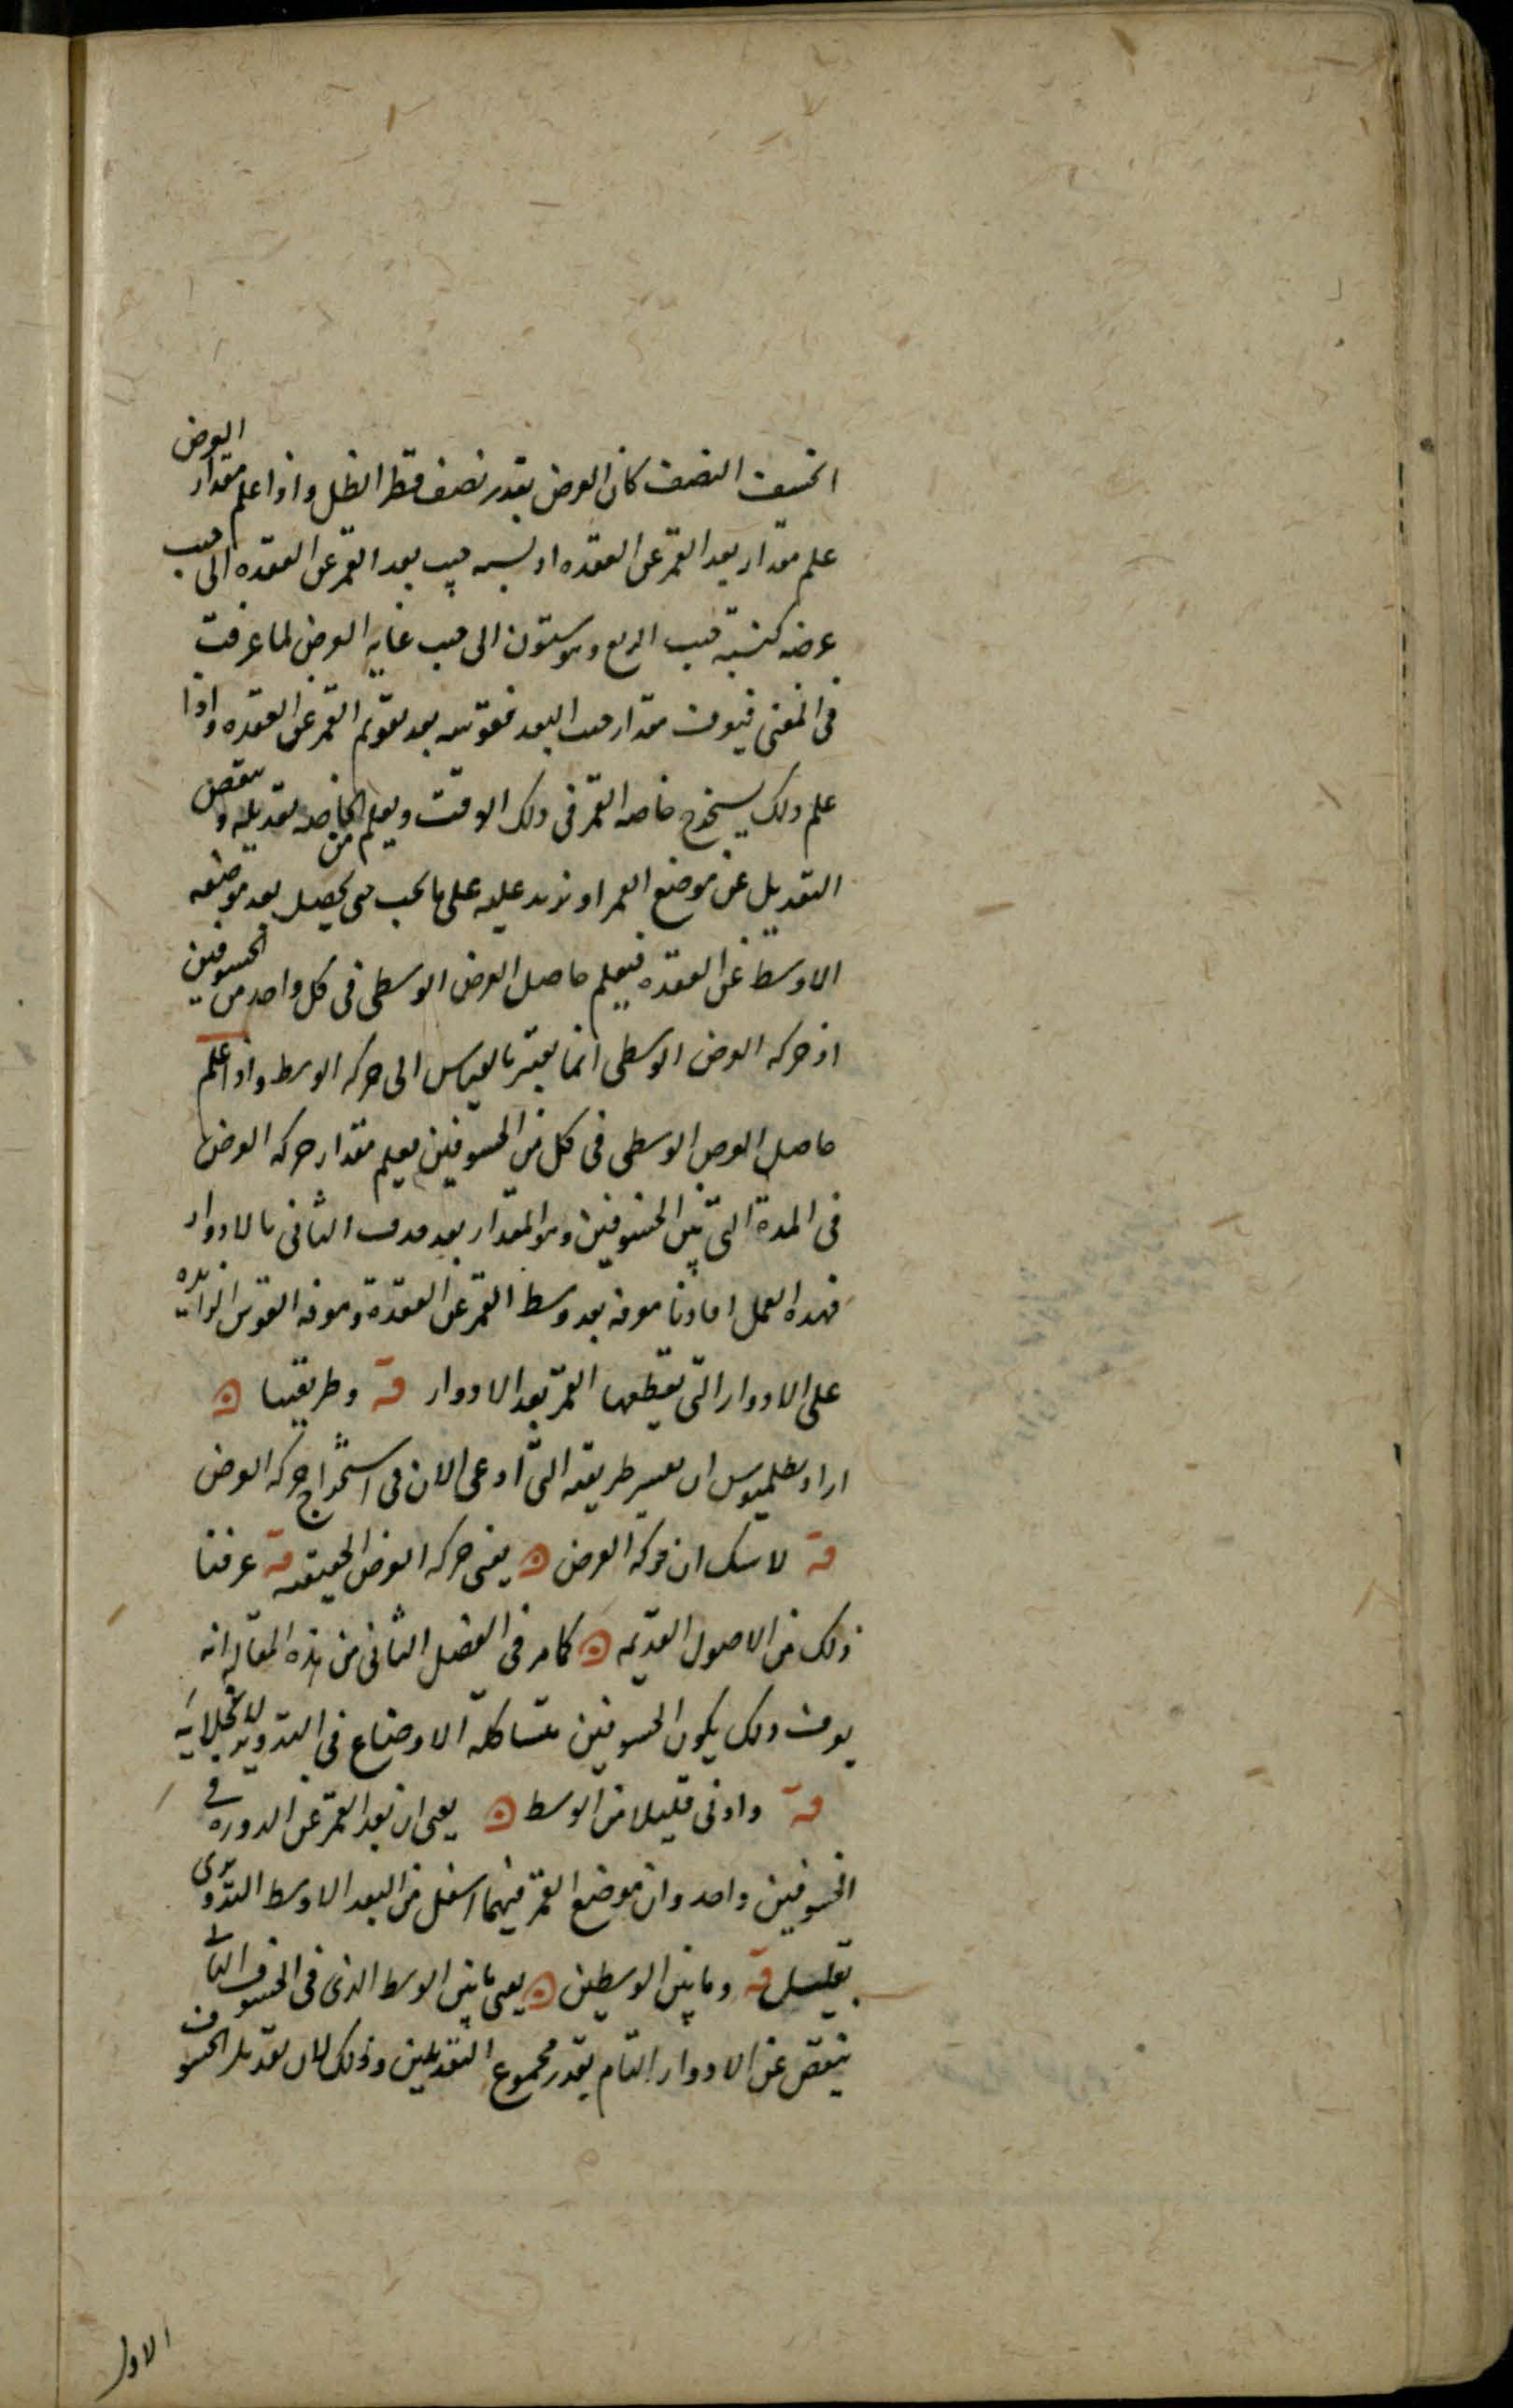 انخسف النصف كان العرض بقدر نصف قطر الظل واذا علم مقدار العرض
علم مقدار بعد القمر عن العقده اذ نسبه جيب بعد القمر عن العقده الى جيب
عرضه كنسبة جيب الربع وهو ستون الى جيب غايه العرض لما عرفت
فى المغنى فيعرف مقدار جيب البعد فقوسه بعد تقويم القمر عن العقده واذا
علم ذلك يستخرج خاصه القمر فى ذلك الوقت ويعلم من الخاصه تعديله وينقص
التعديل عن موضع القمر او نزيد عليه على ما يجب حتى يحصل بعد موضعه
الاوسط عن العقده فيعلم حاصل العرض الوسطى فى كل واحد من الخسوفين
اذ حركه العرض الوسطى انما يعتبر بالقياس الى حركه الوسط واذا علم
حاصل العرض الوسطى فى كل من الخسوفين يعلم مقدار حركه العرض
فى المدة التى بين الخسوفين وهو المقدار بعد حذف الثانى بالادوار
فهذه العمل افادنا معرفه بعد وسط القمر عن العقدة ومعرفه القوس الزائده
على الادوار التى يقطعها القمر بعد الادوار قه وطريقنا ه
اراد بطلميوس ان يغير طريقته التى ادعى الان فى استخراج حركه العرض
قه لا شك ان حركه العرض ه يعنى حركه العرض الحقيقيه قه عرفنا
ذلك من الاصول القديمه ه كما مر فى الفصل الثانى من هذه المقاله انه
يعرف ذلك بكون الخسوفين متشاكلة الاوضاع فى التدوير لانجلائه
قه وادنى قليلا من الوسط ه يعنى ان بعد القمر عن الدوره فى
الخسوفين واحد وان موضع القمر فيهما اسفل من البعد الاوسط التدويرى
بقليل قه وما بين الوسطين ه يعنى ما بين الوسط الذى فى الخسوف الثانى
ينقص عن الادوار التام بقدر مجموع التعديلين وذلك لان تعديل الخسوف
الاول